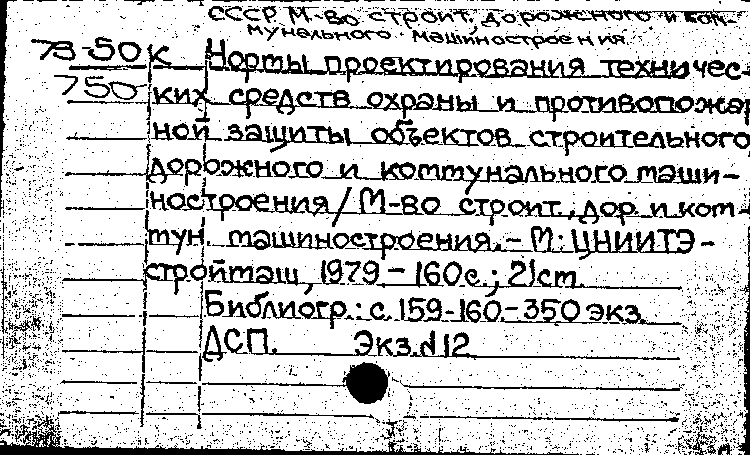 СССР М-во строит. дорожного и ком-
мунального машиностроения
78-50к Нормы проектирования техничес-
750 ких средств охраны и противопожар
ной защиты объектов строительного
дорожного и коммунального маши-
ностроения/М-во строит., дор. и ком-
мун. машиностроения.-М: ЦНИИТЭ-
строймаш, 1979-160с.; 21cm.
Библиогр.: с. 159-160.-350 экз.
ДСП. Экз.N12